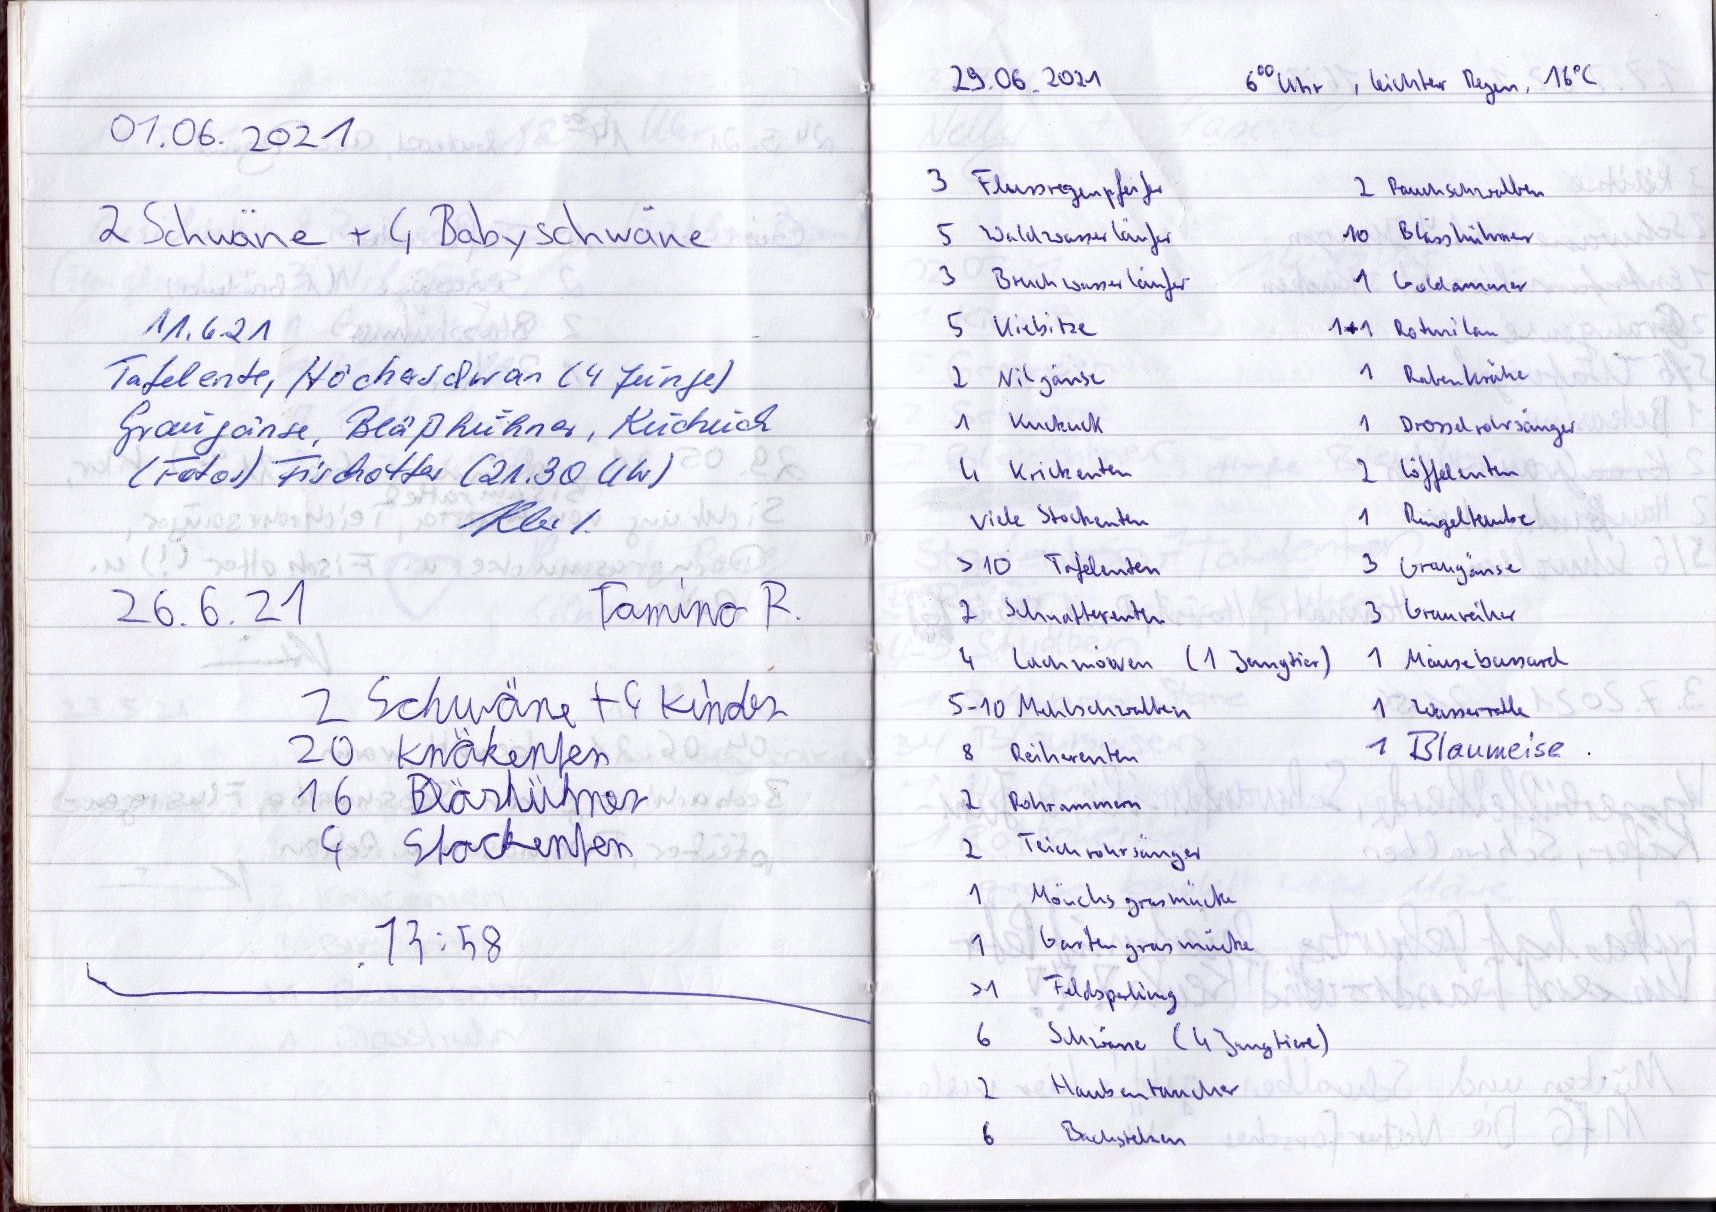 01.06.2021
2 Schwäne + 4 Babyschwäne
11.6.21
Tafelente, Höckerschwan (4 Junge)
Graugänse, Bläßhühner, Kuckuck
(Fotos) Fischotter (21.30 Uhr)
26.6.21 Tamino R.
2 Schwäne + 4 Kinder
20 Knäkenten
16 Bläshühner
4 Stockenten
13:58
29.06.2021 6⁰⁰ Uhr, leichter Regen, 16°C
3 Flussregenpfeifer
5 Waldwasserläufer
3 Bruchwasserläufer
5 Kiebitze
2 Nilgänse
1 Kuckuck
4 Krickenten
viele Stockenten
>10 Tafelenten
2 Schnatterenten
4 Lachmöwen (1 Jungtier)
5-10 Mehlschwalben
8 Reiherenten
2 Rohrammern
2 Teichrohrsänger
1 Mönchsgrasmücke
1 Gartengrasmücke
>1 Feldsperling
6 Schwäne (4 Jungtiere)
2 Haubentaucher
6 Bachstelzen
2 Rauchschwalben
10 Blässhühner
1 Goldammer
1+1 Rotmilan
1 Rabenkrähe
1 Drosselrohrsänger
2 Löffelenten
1 Ringeltaube
3 Graugänse
3 Graureiher
1 Mäusebussard
1 Wasserralle
1 Blaumeise.